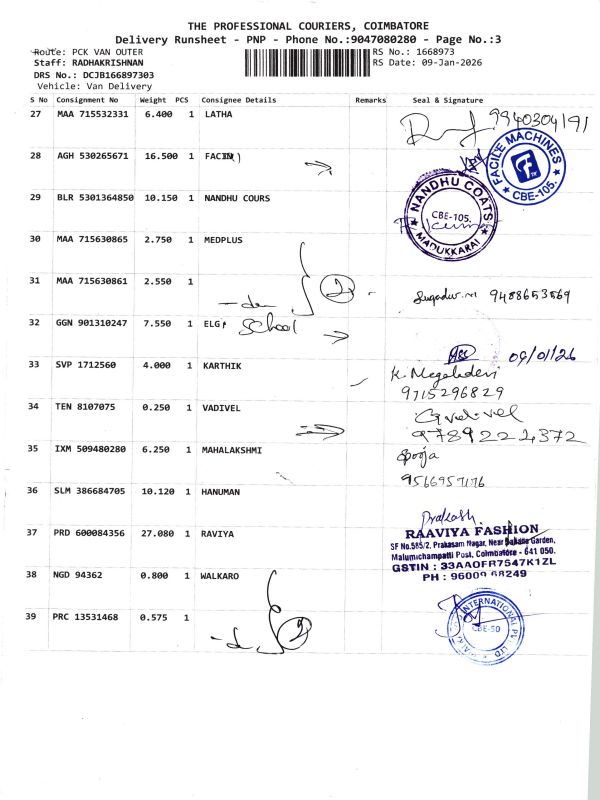 THE PROFESSIONAL COURIERS, COIMBATORE
Delivery Runsheet - PNP - Phone No.:9047080280 - Page No.:3
Route: PCK VAN OUTER
RS No.: 1668973
Staff: RADHAKRISHNAN
RS Date: 09-Jan-2026
DRS No.: DCJB166897303
Vehicle: Van Delivery
S No Consignment No Weight PCS Consignee Details Remarks Seal & Signature
27 MAA 715532331 6.400 1 LATHA 9940304191
28 AGH 530265671 16.500 1
FACILE MACHINES
CBE-105.
29 BLR 5301364850 10.150 1 NANDHU COURS
NANDHU COATS
CBE-105.
MADUKKARAI
30 MAA 715630865 2.750 1 MEDPLUS
31 MAA 715630861 2.550 1 2 9488653569
32 GGN 901310247 7.550 1 ELGI School
09/01/26
33 SVP 1712560 4.000 1 KARTHIK K. Megaladevi
9715296829
34 TEN 8107075 0.250 1 VADIVEL
9789224372
35 IXM 509480280 6.250 1 MAHALAKSHMI Pooja
9566957176
36 SLM 386684705 10.120 1 HANUMAN
Prakash
37 PRD 600084356 27.080 1 RAVIYA RAAVIYA FASHION
SF No.585/2, Prakasam Nagar, Near Garden,
Malumichampatti Post, Coimbatore - 641 050.
GSTIN : 33AAOFR7547K1ZL
PH : 96009 68249
38 NGD 94362 0.800 1 WALKARO
39 PRC 13531468 0.575 1 2
INTERNATIONAL PVT LTD
CBE-50